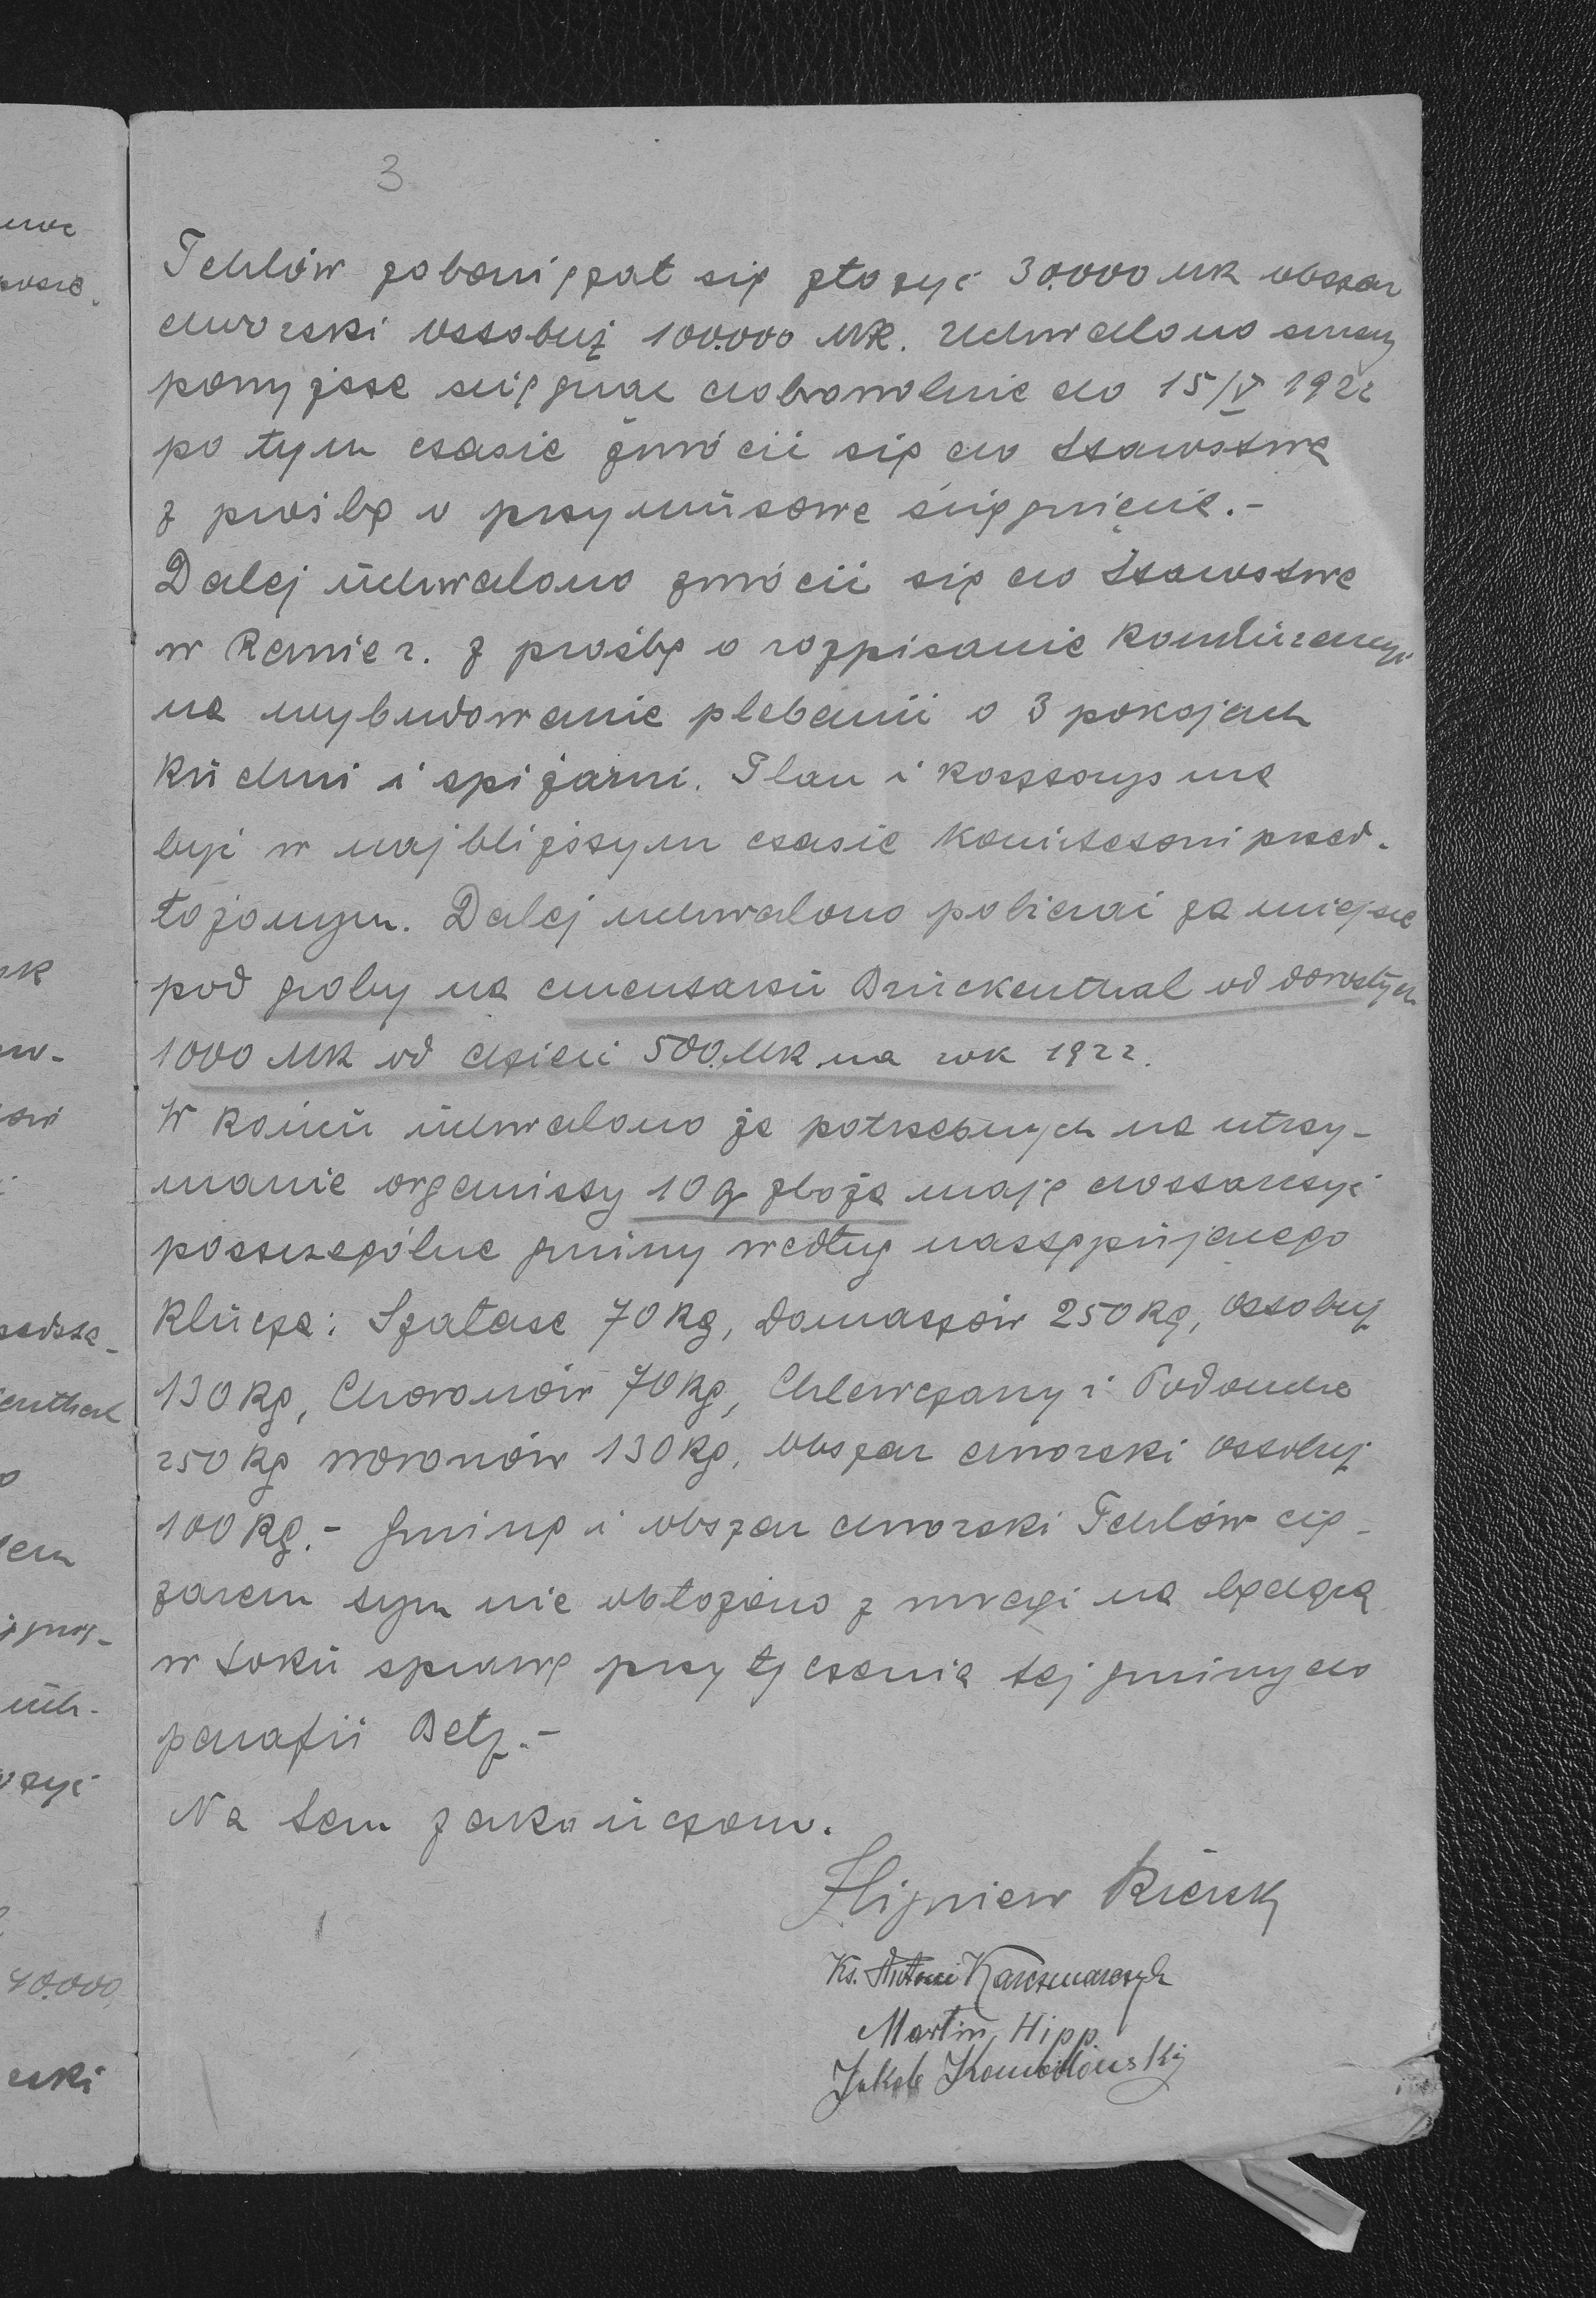 3
Tehlów zobowiązał się złożyć 30.000 Mk obszar
dworski Ostobuż 100.000 Mk. Uchwalono sumy
powyższe ściągnąć dobrowolnie do 15/V 1922
po tym czasie zwrócić się do Starostwa
z prośbą o przymusowe ściągnięcie.-
Dalej uchwalono zwrócić się do Starostwa
w Rawie r. z prośbą o rozpisanie konkurencyi
na wybudowanie plebanii o 3 pokojach
kuchni i spiżarni. Plan i kosztorys ma
być w najbliższym czasie Komitetowi przed-
łożonym. Dalej uchwalono pobierać za miejsce
pod groby na cmentarzu Brückenthal od dorosłych
1000 Mk od dzieci 500 Mk na rok 1922.
W końcu uchwalono że potrzebnych na utrzy-
manie organisty 10 q zboża mają dostarczyć
poszczególne gminy według następującego
klucza: Szałasze 70 kg, Domaszów 250 kg, Ostobuż
130 kg, Choronów 70 kg, Chlewczany i Poddubce
250 kg Woronów 130 kg, obszar dworski Ostobuż
100 kg.- Gminę i obszar dworski Tehlów cię-
żarem tym nie obłożono z uwagi na będącą
w toku sprawę przyłączenia tej gminy do
parafii Bełz.-
Na tem zakończono.
Zbigniew
Ks. Antoni Karczmarczyk
Martin Hipp
Jakob
uwe
nk
sw-
enthal
em
ożyć
40.000
eski